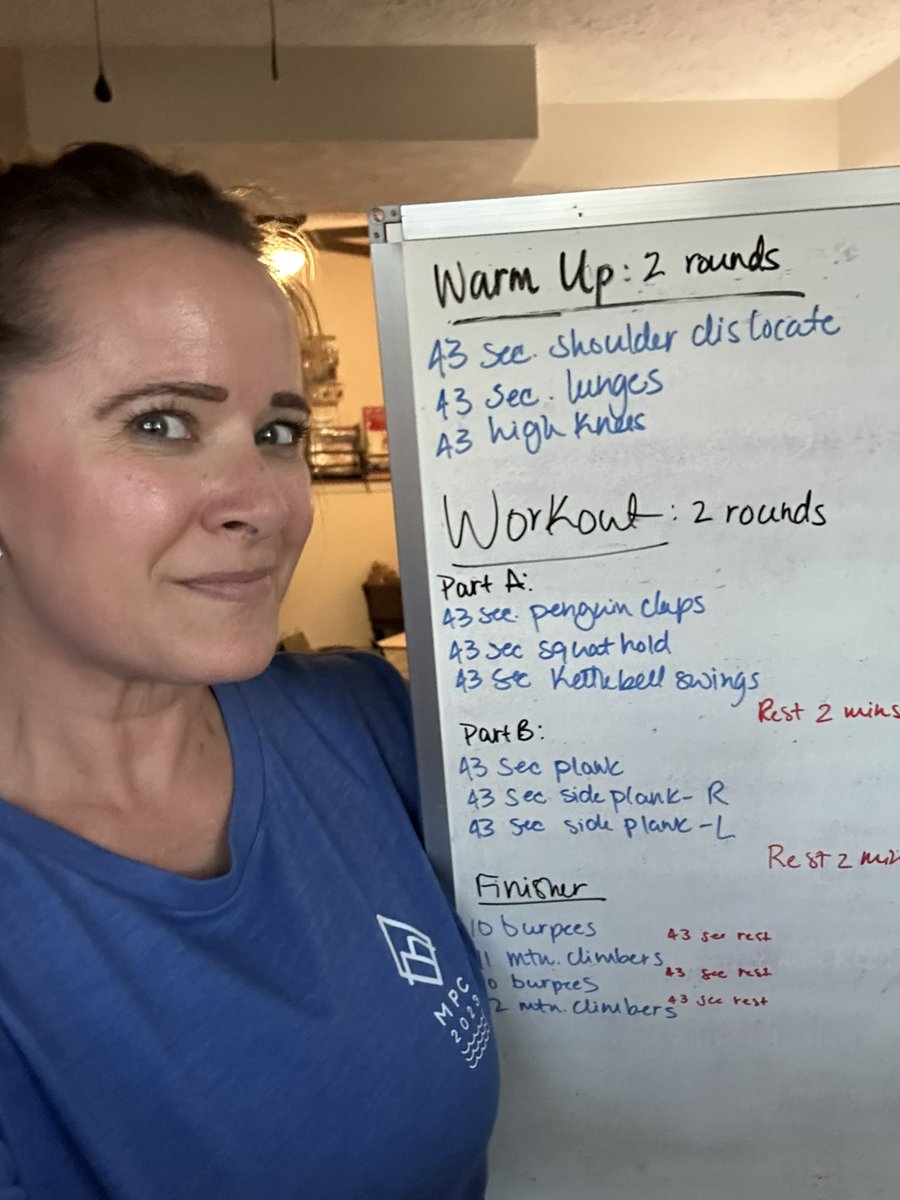 Warm Up: 2 rounds
43 sec. shoulder dislocate
43 sec. lunges
43 high knees
Workout: 2 rounds
Part A:
43 sec. penguin claps
43 sec squat hold
43 sec Kettlebell swings
Rest 2 mins
Part B:
43 sec plank
43 sec side plank - R
43 sec side plank - L
Rest 2 min
Finisher
10 burpees 43 sec rest
mtn. climbers 43 sec rest
burpees
mtn. climbers 43 sec rest
MPC
2023